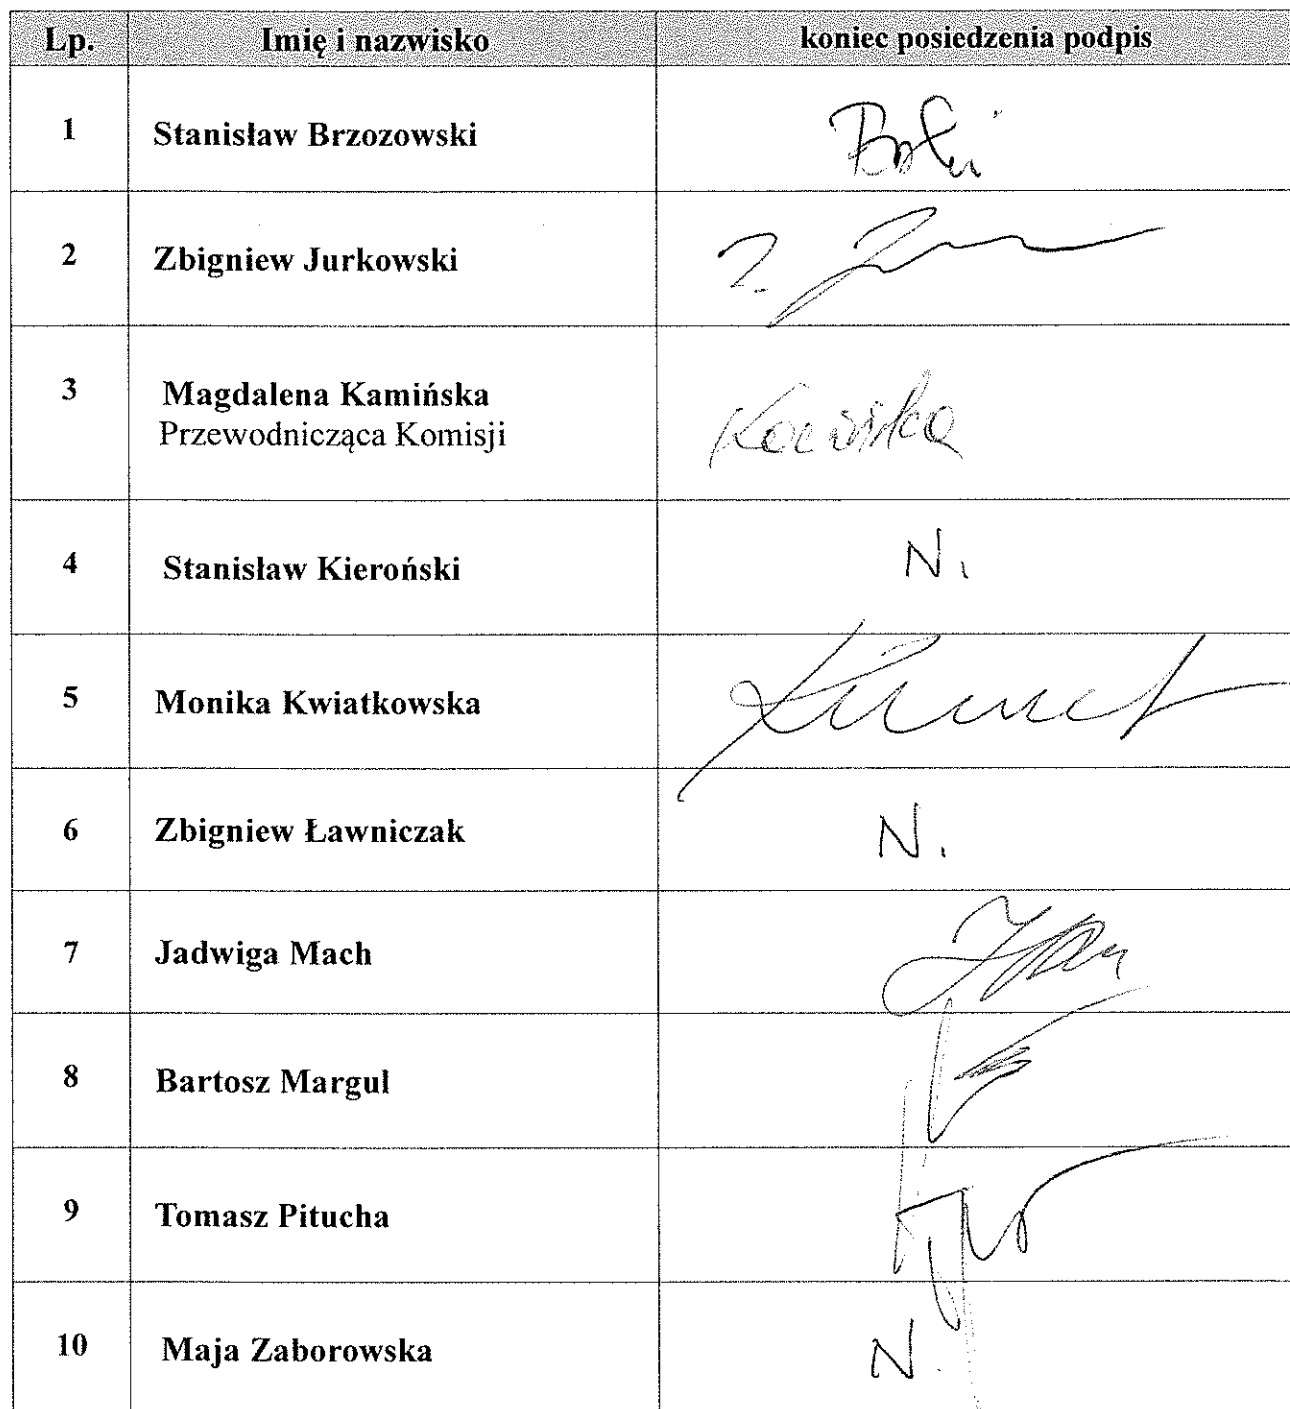 Lp. Imię i nazwisko koniec posiedzenia podpis
1 Stanisław Brzozowski
2 Zbigniew Jurkowski
3 Magdalena Kamińska
Przewodnicząca Komisji
4 Stanisław Kieroński N.
5 Monika Kwiatkowska
6 Zbigniew Ławniczak N.
7 Jadwiga Mach
8 Bartosz Margul
9 Tomasz Pitucha
10 Maja Zaborowska N.